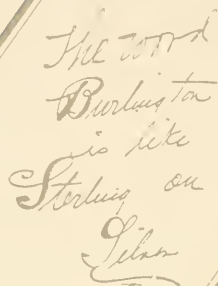 The word
Burlington
is like
Sterling on
Silver